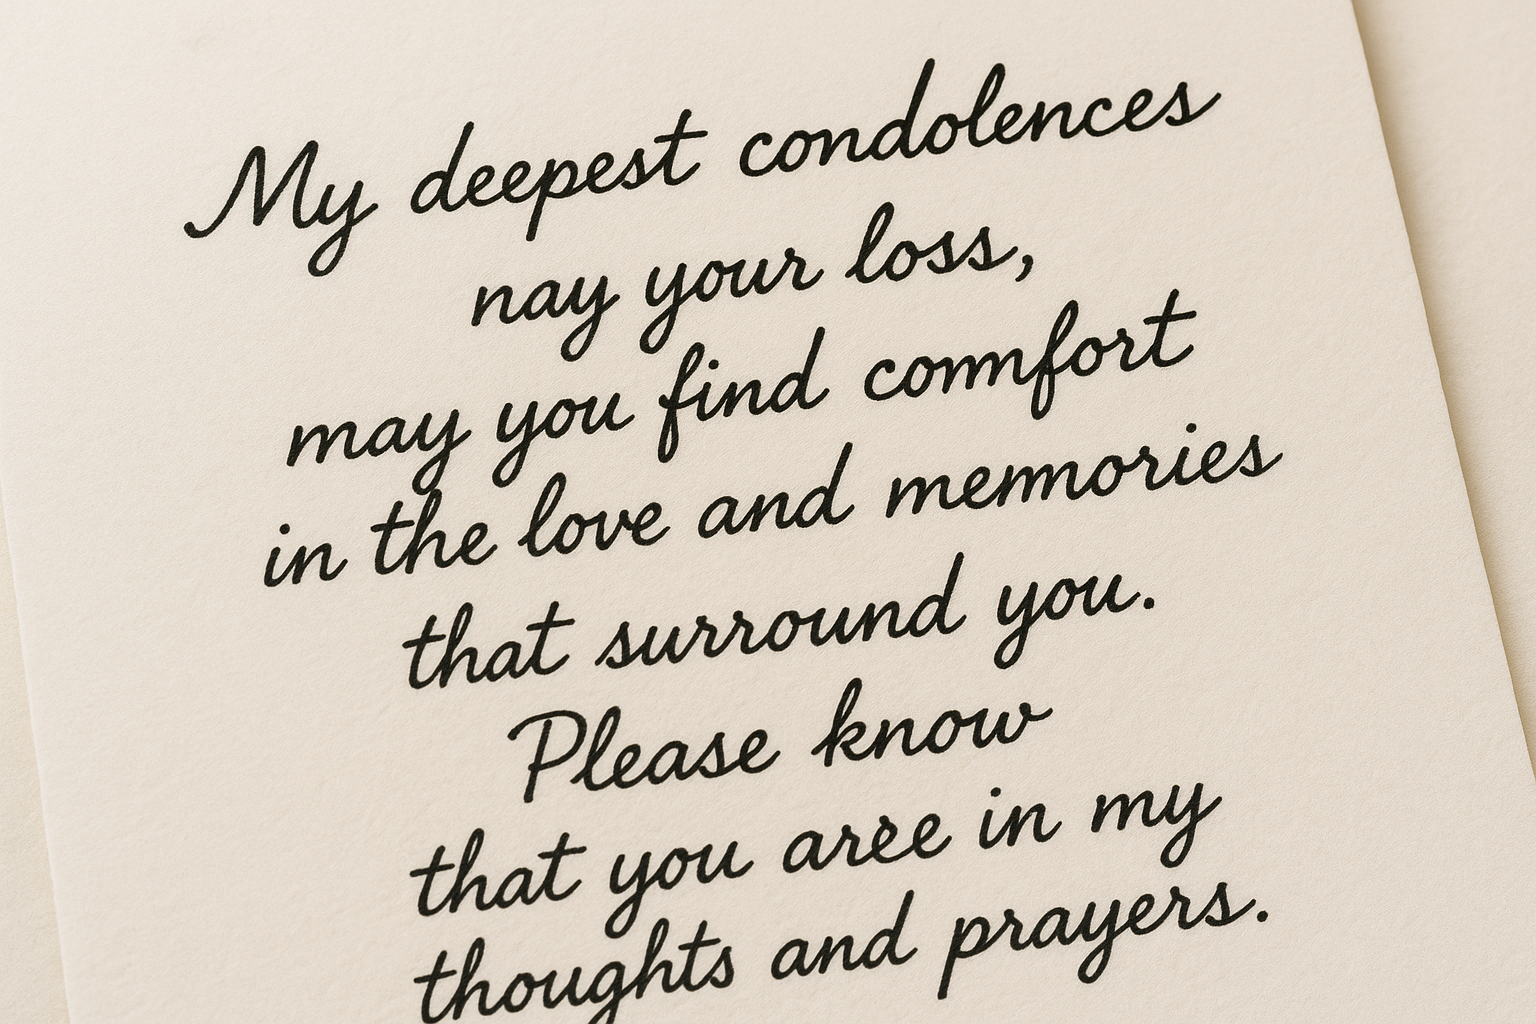 My deepest condolences
nay your loss,
may you find comnfort
in the love and memnories
that surround you.
Please know
that you aree in my
thoughts and prayers.